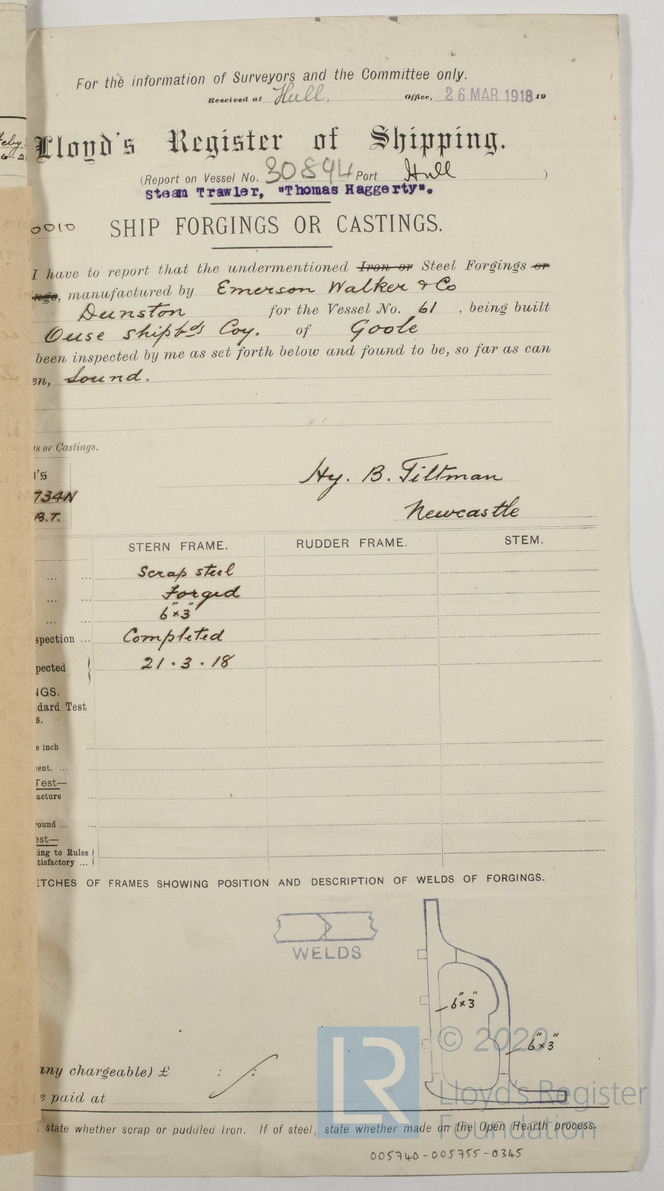 For the information of Surveyors and the Committee only.
Received at Hull. Office, 26 MAR 1918 19
Lloyd's Register of Shipping.
(Report on Vessel No. 30894 Port Hull )
Steam Trawler, "Thomas Haggerty".
0010
SHIP FORGINGS OR CASTINGS.
I have to report that the undermentioned Iron or Steel Forgings or
ngs, manufactured by Emerson Walker & Co
Dunston for the Vessel No. 61 , being built
Ouse Shipbds Coy. of Goole
been inspected by me as set forth below and found to be, so far as can
en, Sound.
gs or Castings.
's
734N
B.T.
Hy. B. Tiltman
Newcastle
STERN FRAME. RUDDER FRAME. STEM.
... ... Scrap steel
... ... Forged
... ... 6"×3"
spection ... Completed
pected } 21.3.18
NGS.
dard Test
s.
e inch ...
ent. ... ...
Test—
acture ...
ound ... ...
est—
ing to Rules
tisfactory ... }
ETCHES OF FRAMES SHOWING POSITION AND DESCRIPTION OF WELDS OF FORGINGS.
WELDS
6"×3"
6"×3"
any chargeable) £ : :
e paid at
state whether scrap or puddled Iron. If of steel, state whether made on the Open Hearth process.
LR
© 2020
Lloyd's Register
Foundation
005740-005755-0345